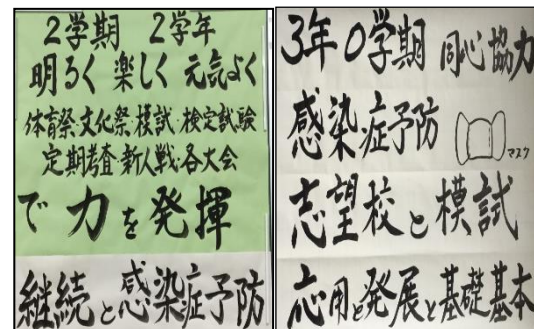 2学期 2学年
明るく 楽しく 元気よく
体育祭・文化祭・模試・検定試験
定期考査・新人戦・各大会
で 力を発揮
継続と感染症予防
3年0学期 同心協力
感染症予防
マスク
志望校と模試
応用と発展と基礎基本